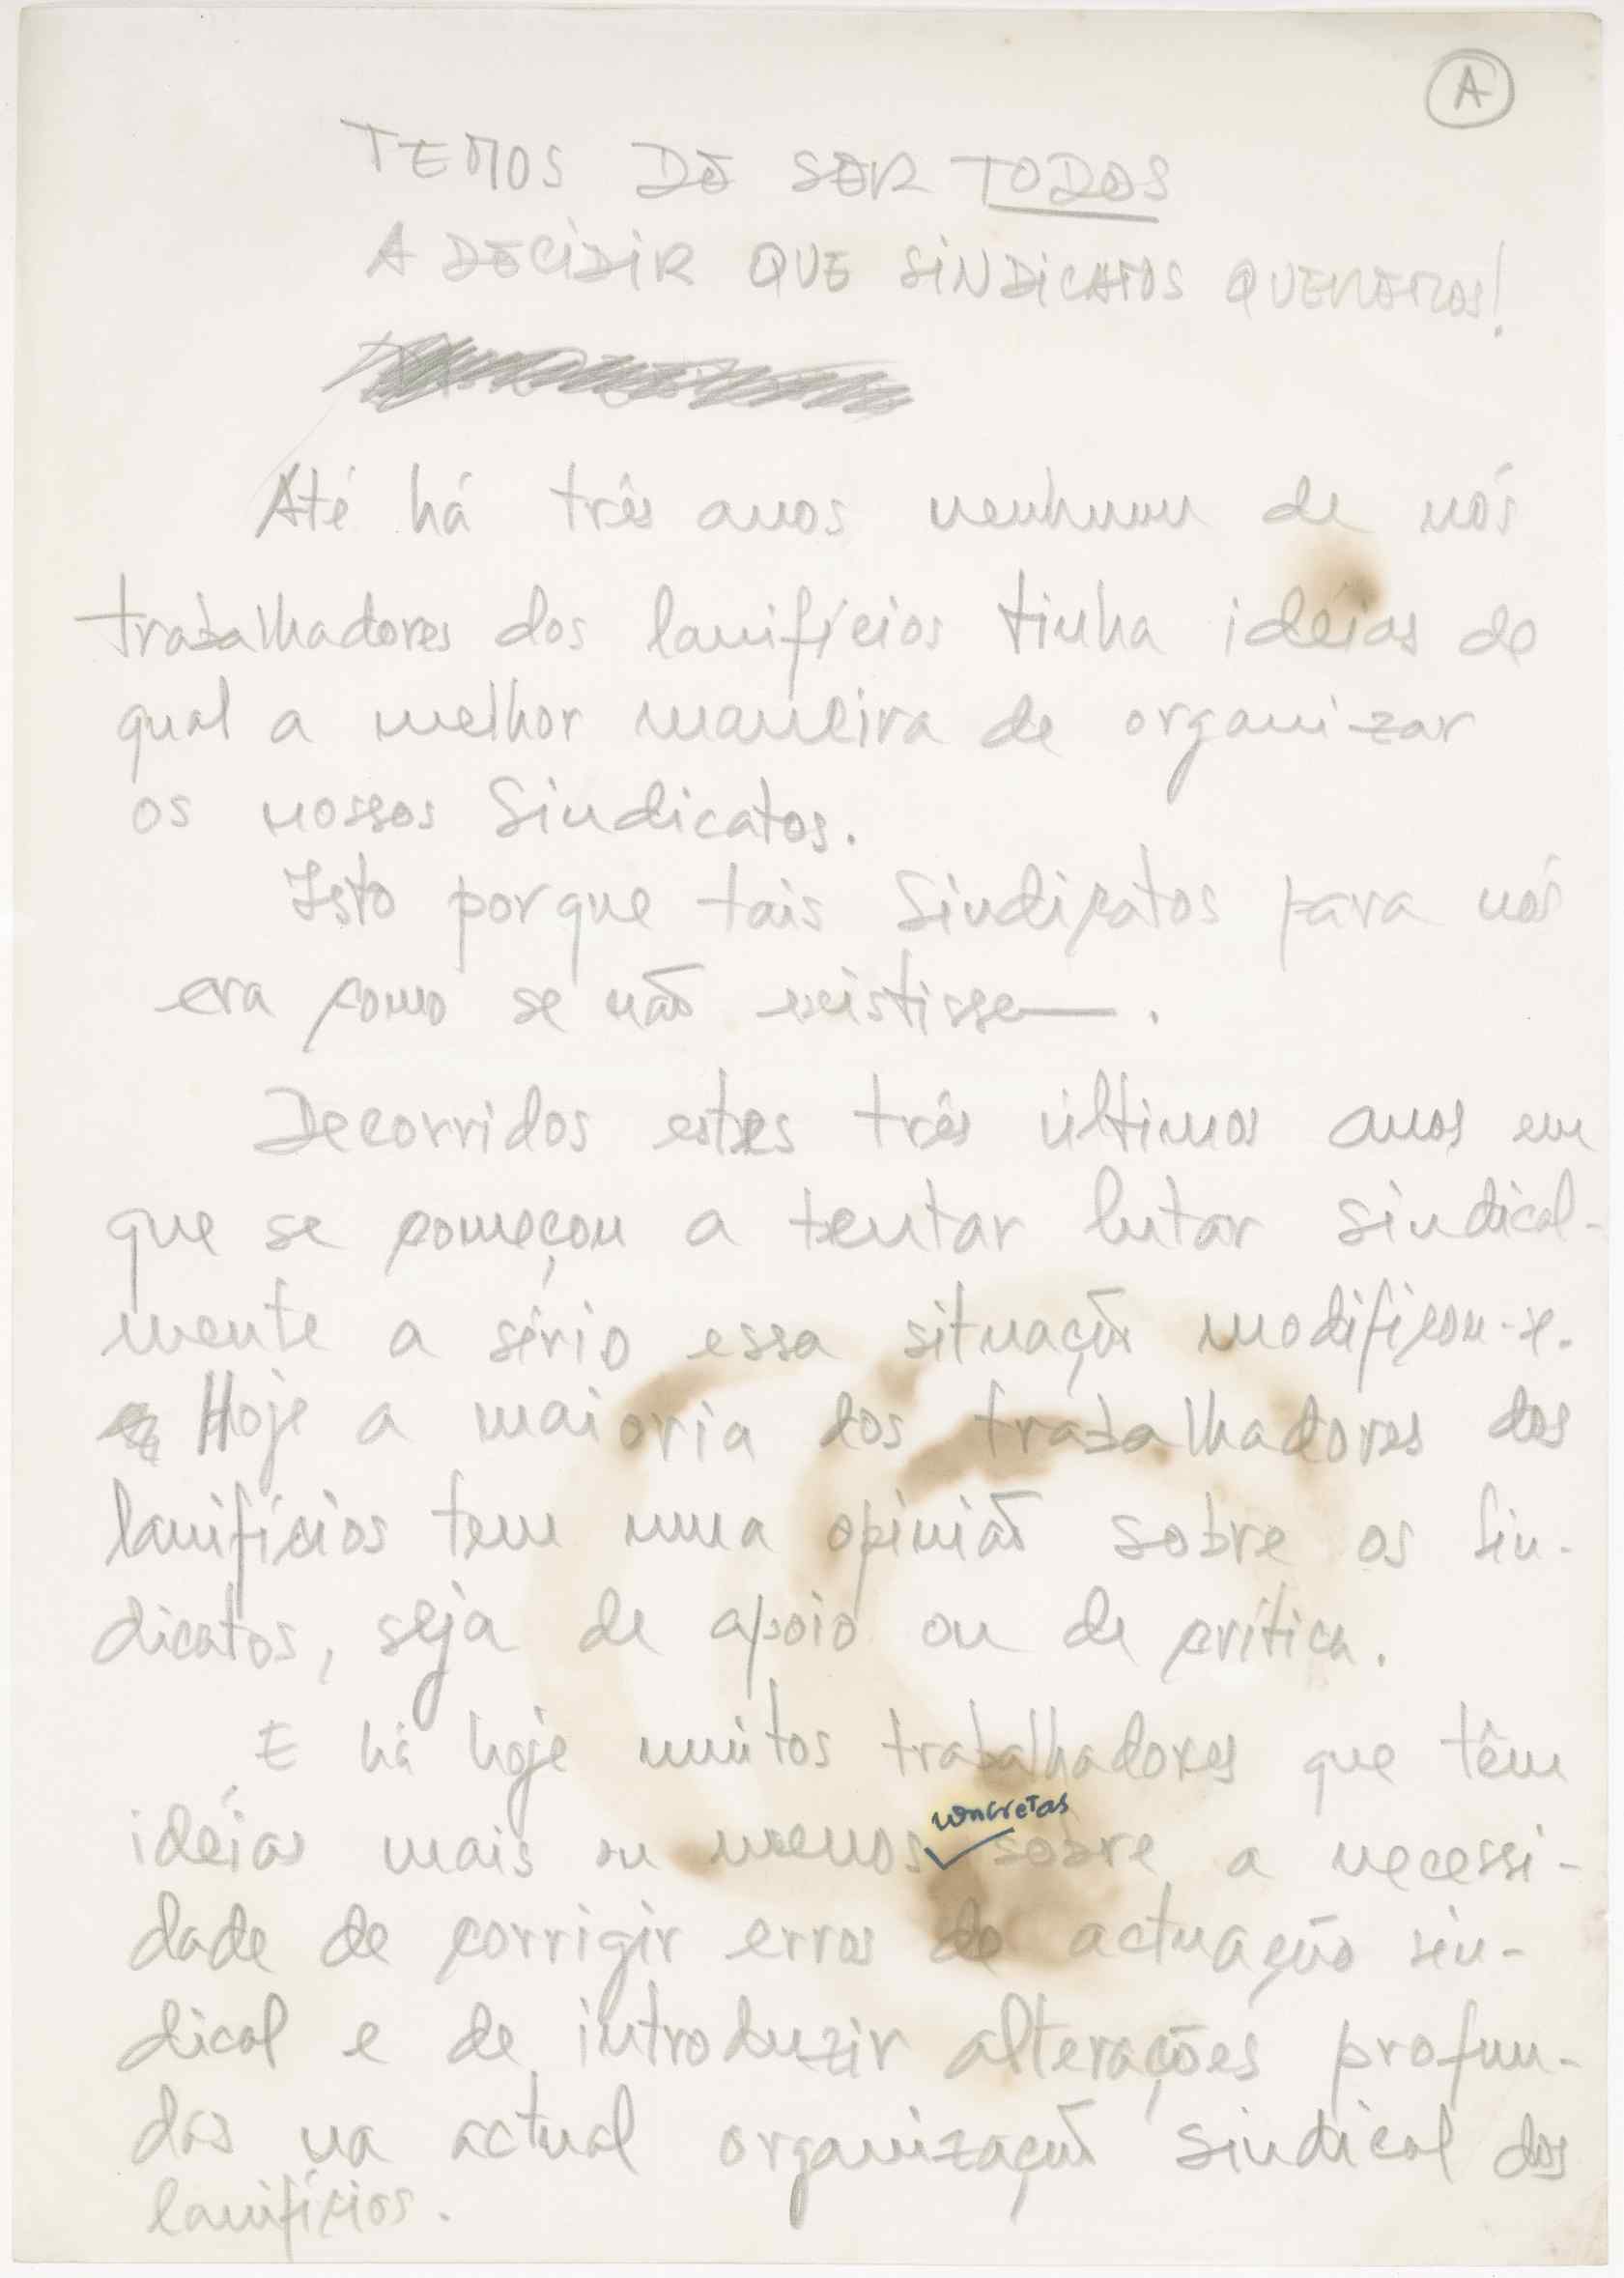 A
TEMOS DE SER TODOS
A DECIDIR QUE SINDICATOS QUEREMOS!
Até há três anos nenhum de nós
trabalhadores dos lanifícios tinha idéias de
qual a melhor maneira de organizar
os nossos Sindicatos.
Isto porque tais Sindicatos para nós
era como se não existisse.
Decorridos estes três últimos anos em
que se começou a tentar lutar sindical-
mente a sério essa situação modificou-se.
Hoje a maioria dos trabalhadores dos
lanifícios tem uma opinião sobre os Sin-
dicatos, seja de apoio ou de crítica.
E há hoje muitos trabalhadores que têm
concretas
idéias mais ou menos sobre a necessi-
dade de corrigir erros de actuação sin-
dical e de introduzir alterações profun-
das na actual organização sindical dos
lanifícios.